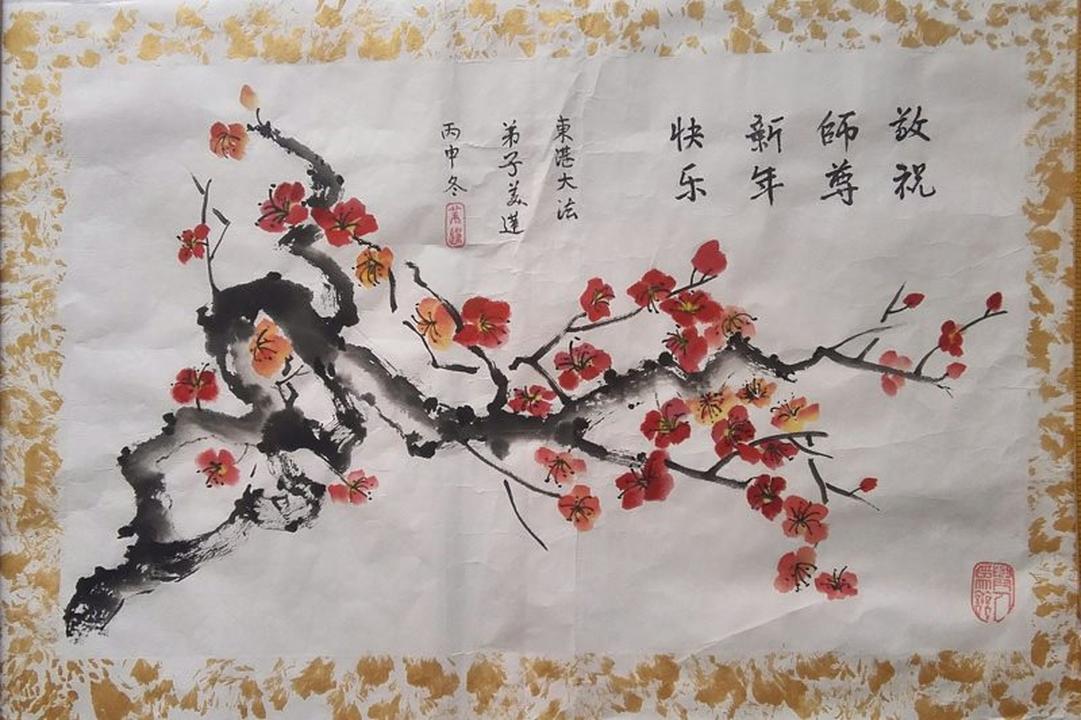 敬祝
師尊
新年
快乐
東港大法
弟子美莲
丙申冬